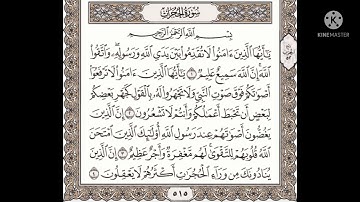 سُورَةُ الحُجُرَاتِ
بِسْمِ اللَّهِ الرَّحْمَٰنِ الرَّحِيمِ
يَٰٓأَيُّهَا ٱلَّذِينَ ءَامَنُوا۟ لَا تُقَدِّمُوا۟ بَيْنَ يَدَىِ ٱللَّهِ وَرَسُولِهِۦ ۖ وَٱتَّقُوا۟
ٱللَّهَ ۚ إِنَّ ٱللَّهَ سَمِيعٌ عَلِيمٌ ١ يَٰٓأَيُّهَا ٱلَّذِينَ ءَامَنُوا۟ لَا تَرْفَعُوٓا۟
أَصْوَٰتَكُمْ فَوْقَ صَوْتِ ٱلنَّبِىِّ وَلَا تَجْهَرُوا۟ لَهُۥ بِٱلْقَوْلِ كَجَهْرِ بَعْضِكُمْ
لِبَعْضٍ أَن تَحْبَطَ أَعْمَٰلُكُمْ وَأَنتُمْ لَا تَشْعُرُونَ ٢ إِنَّ ٱلَّذِينَ
يَغُضُّونَ أَصْوَٰتَهُمْ عِندَ رَسُولِ ٱللَّهِ أُو۟لَٰٓئِكَ ٱلَّذِينَ ٱمْتَحَنَ
ٱللَّهُ قُلُوبَهُمْ لِلتَّقْوَىٰ ۚ لَهُم مَّغْفِرَةٌ وَأَجْرٌ عَظِيمٌ ٣ إِنَّ ٱلَّذِينَ
يُنَادُونَكَ مِن وَرَآءِ ٱلْحُجُرَٰتِ أَكْثَرُهُمْ لَا يَعْقِلُونَ ٤
٥١٥
Made with
KINEMASTER